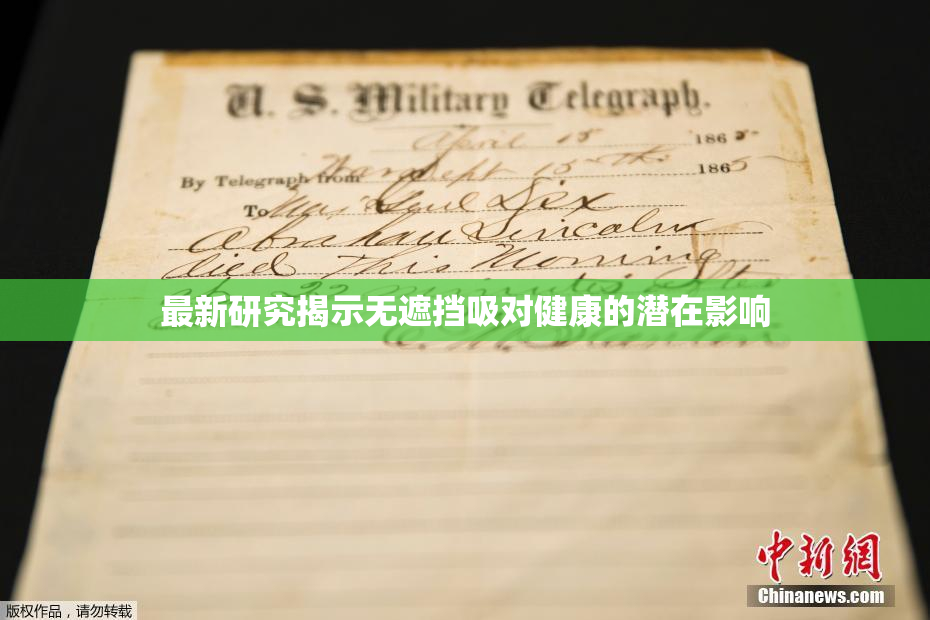 U. S. Military Telegraph.
April 15 1865
By Telegraph from War Dept 15th 1865
To Maj Genl Dix
Abraham Lincoln
died This Morning
at 22 minutes after
最新研究揭示无遮挡吸对健康的潜在影响
E. M. Stanton
中新网
Chinanews.com
版权作品，请勿转载